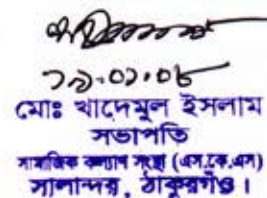 মোঃ খাদেমুল ইসলাম
সভাপতি
সামাজিক কল্যাণ সংস্থা (এস.কে.এস)
সালান্দর, ঠাকুরগাঁও।